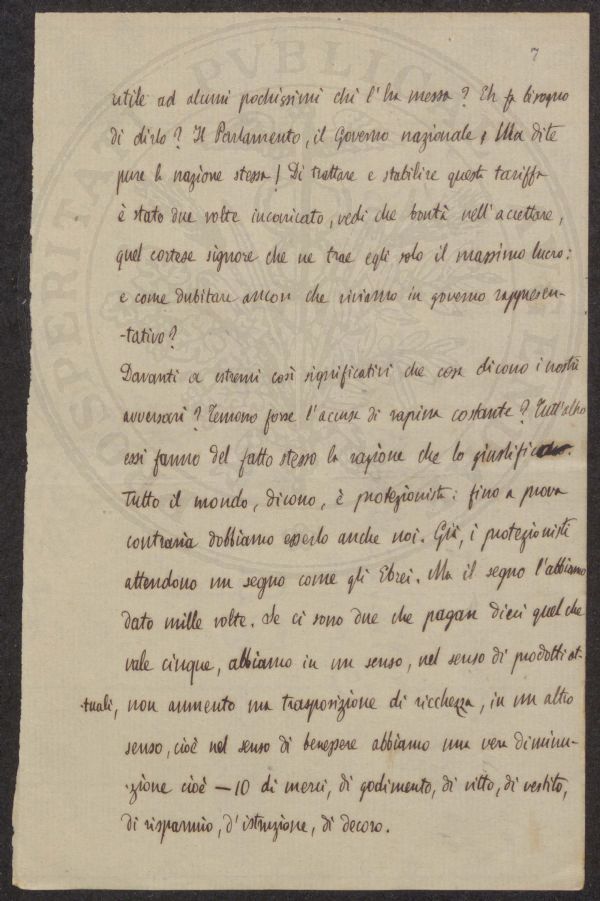 7
utile ad alcuni pochissimi chi l'ha messa? Eh fa bisogno
di dirlo? Il Parlamento, il Governo nazionale, Ma dite
pure la nazione stessa! Di trattare e stabilire questa tariffa
è stato due volte incaricato, vedi che bontà nell'accettare,
quel cortese signore che ne trae egli solo il massimo lucro:
e come dubitare ancora che viviamo in governo rappresen-
-tativo?
Davanti a estremi così significativi che cosa dicono i nostri
avversari? Temono forse l'accusa di rapina costante? Tutt'altro
essi fanno del fatto stesso la ragione che lo giustifica.
Tutto il mondo, dicono, è protezionista: fino a prova
contraria dobbiamo esserlo anche noi. Già, i protezionisti
attendono un segno come gli Ebrei. Ma il segno l'abbiamo
dato mille volte. Se ci sono due che pagan dieci quel che
vale cinque, abbiamo in un senso, nel senso di prodotti at-
-tuali, non aumento ma trasposizione di ricchezza, in un altro
senso, cioè nel senso di benessere abbiamo una vera diminu-
-zione cioè —10 di merci, di godimento, di vitto, di vestito,
di risparmio, d'istruzione, di decoro.
OSPERITAS PUBLICA